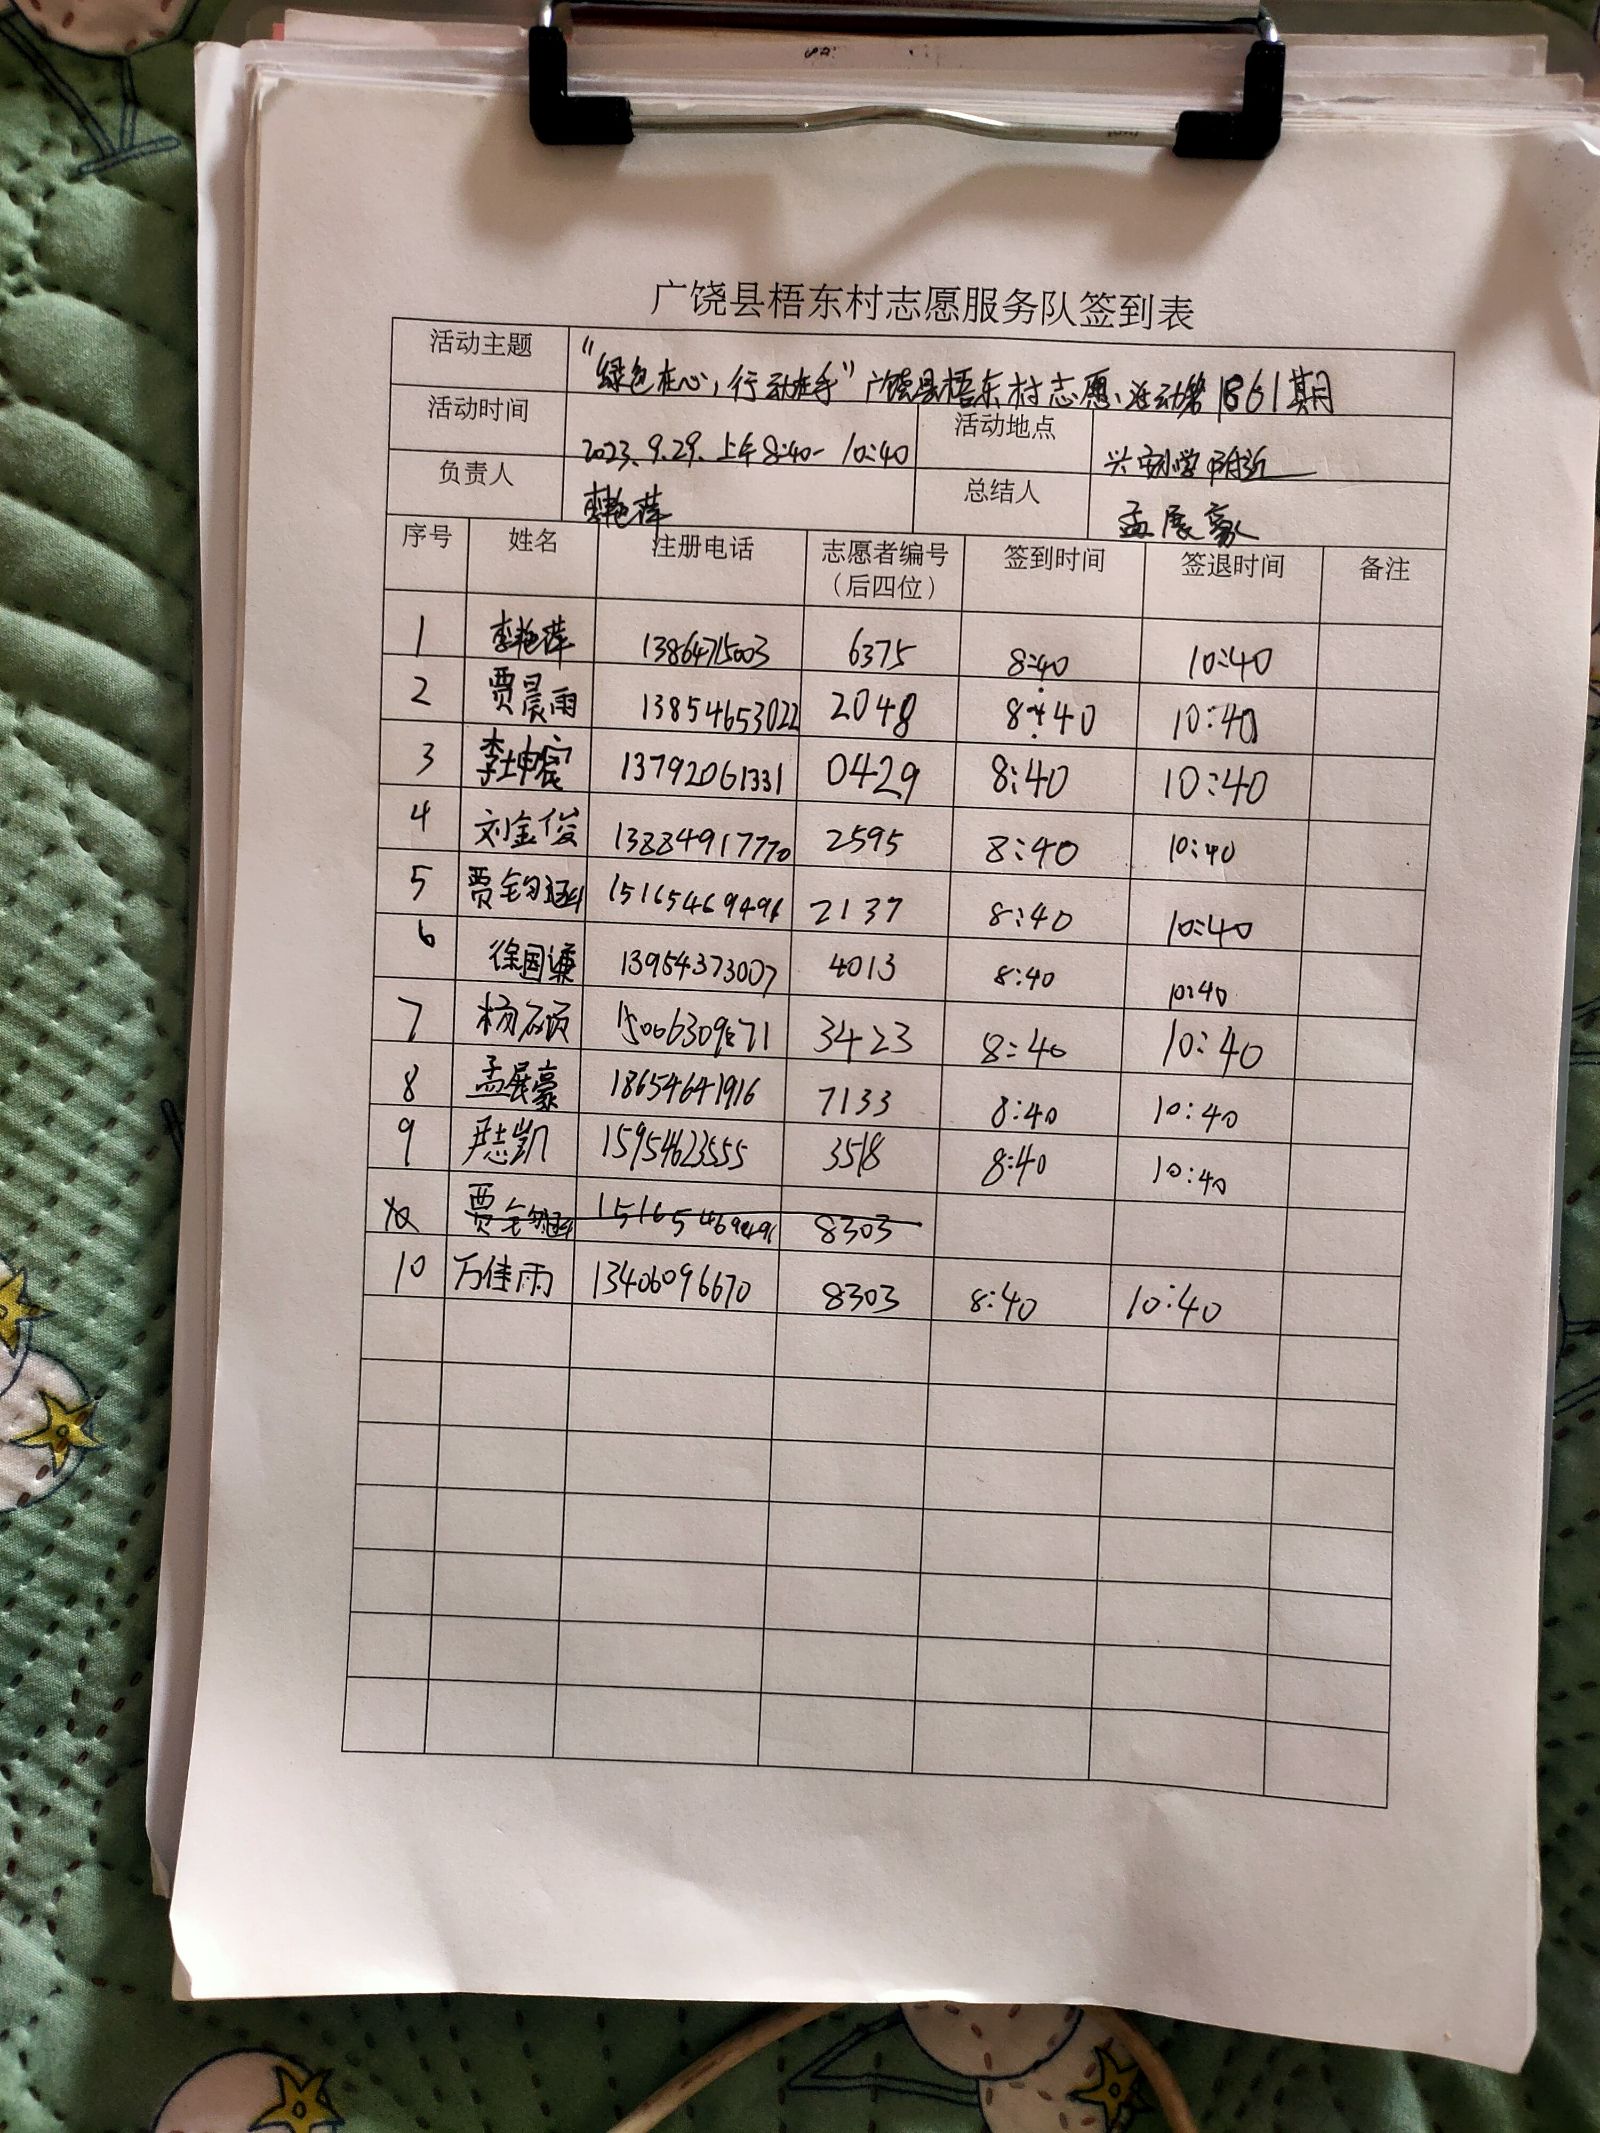 广饶县梧东村志愿服务队签到表
活动主题 “绿色在心，行动在手”广饶县梧东村志愿活动第1861期
活动时间 2023.9.29.上午8:40-10:40 活动地点 兴安小学附近
负责人 李艳萍 总结人 孟展豪
序号 姓名 注册电话 志愿者编号（后四位） 签到时间 签退时间 备注
1 李艳萍 13864715003 6375 8:40 10:40
2 贾晨雨 13854653022 2048 8:40 10:40
3 李坤宸 13792061331 0429 8:40 10:40
4 刘金俊 13884917770 2595 8:40 10:40
5 贾钧涵 15165469491 2137 8:40 10:40
6 徐国谦 13954373007 4013 8:40 10:40
7 杨石硕 3423 8:40 10:40
8 孟展豪 18654641916 7133 8:40 10:40
9 尹志凯 15954623555 3518 8:40 10:40
10 贾钧涵 15165469491 8303
10 万佳雨 13406096670 8303 8:40 10:40